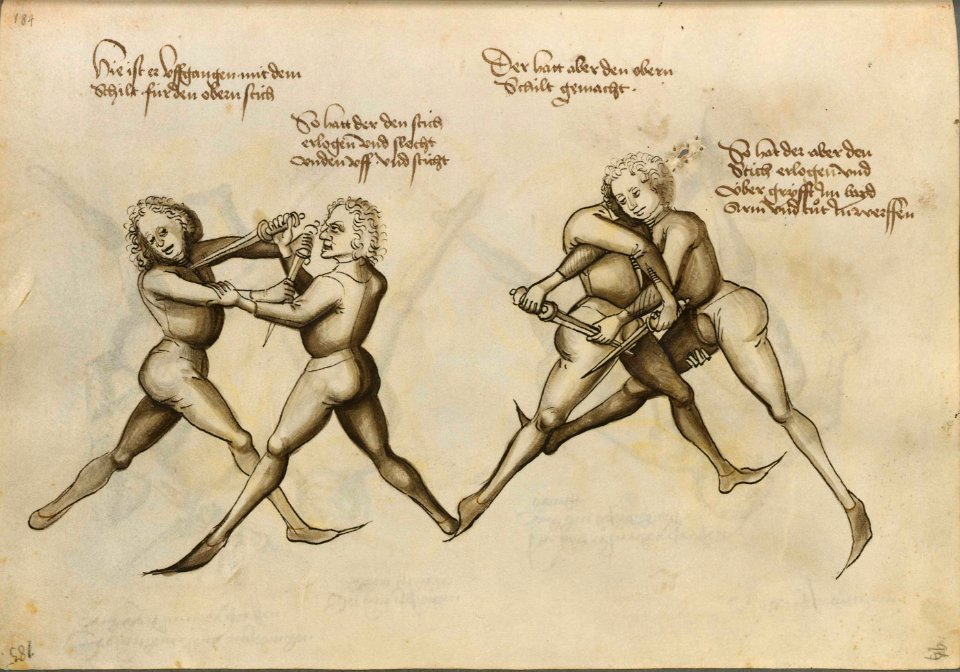 184
Hie ist er uffgangen mit dem
Schilt für den obern stich
So hatt der den stich
erlogen und slecht
unden uff und sticht
Der hatt aber den obern
Schilt gemacht
So hat der aber den
Stich erlogen und
über
arm und werffen
185